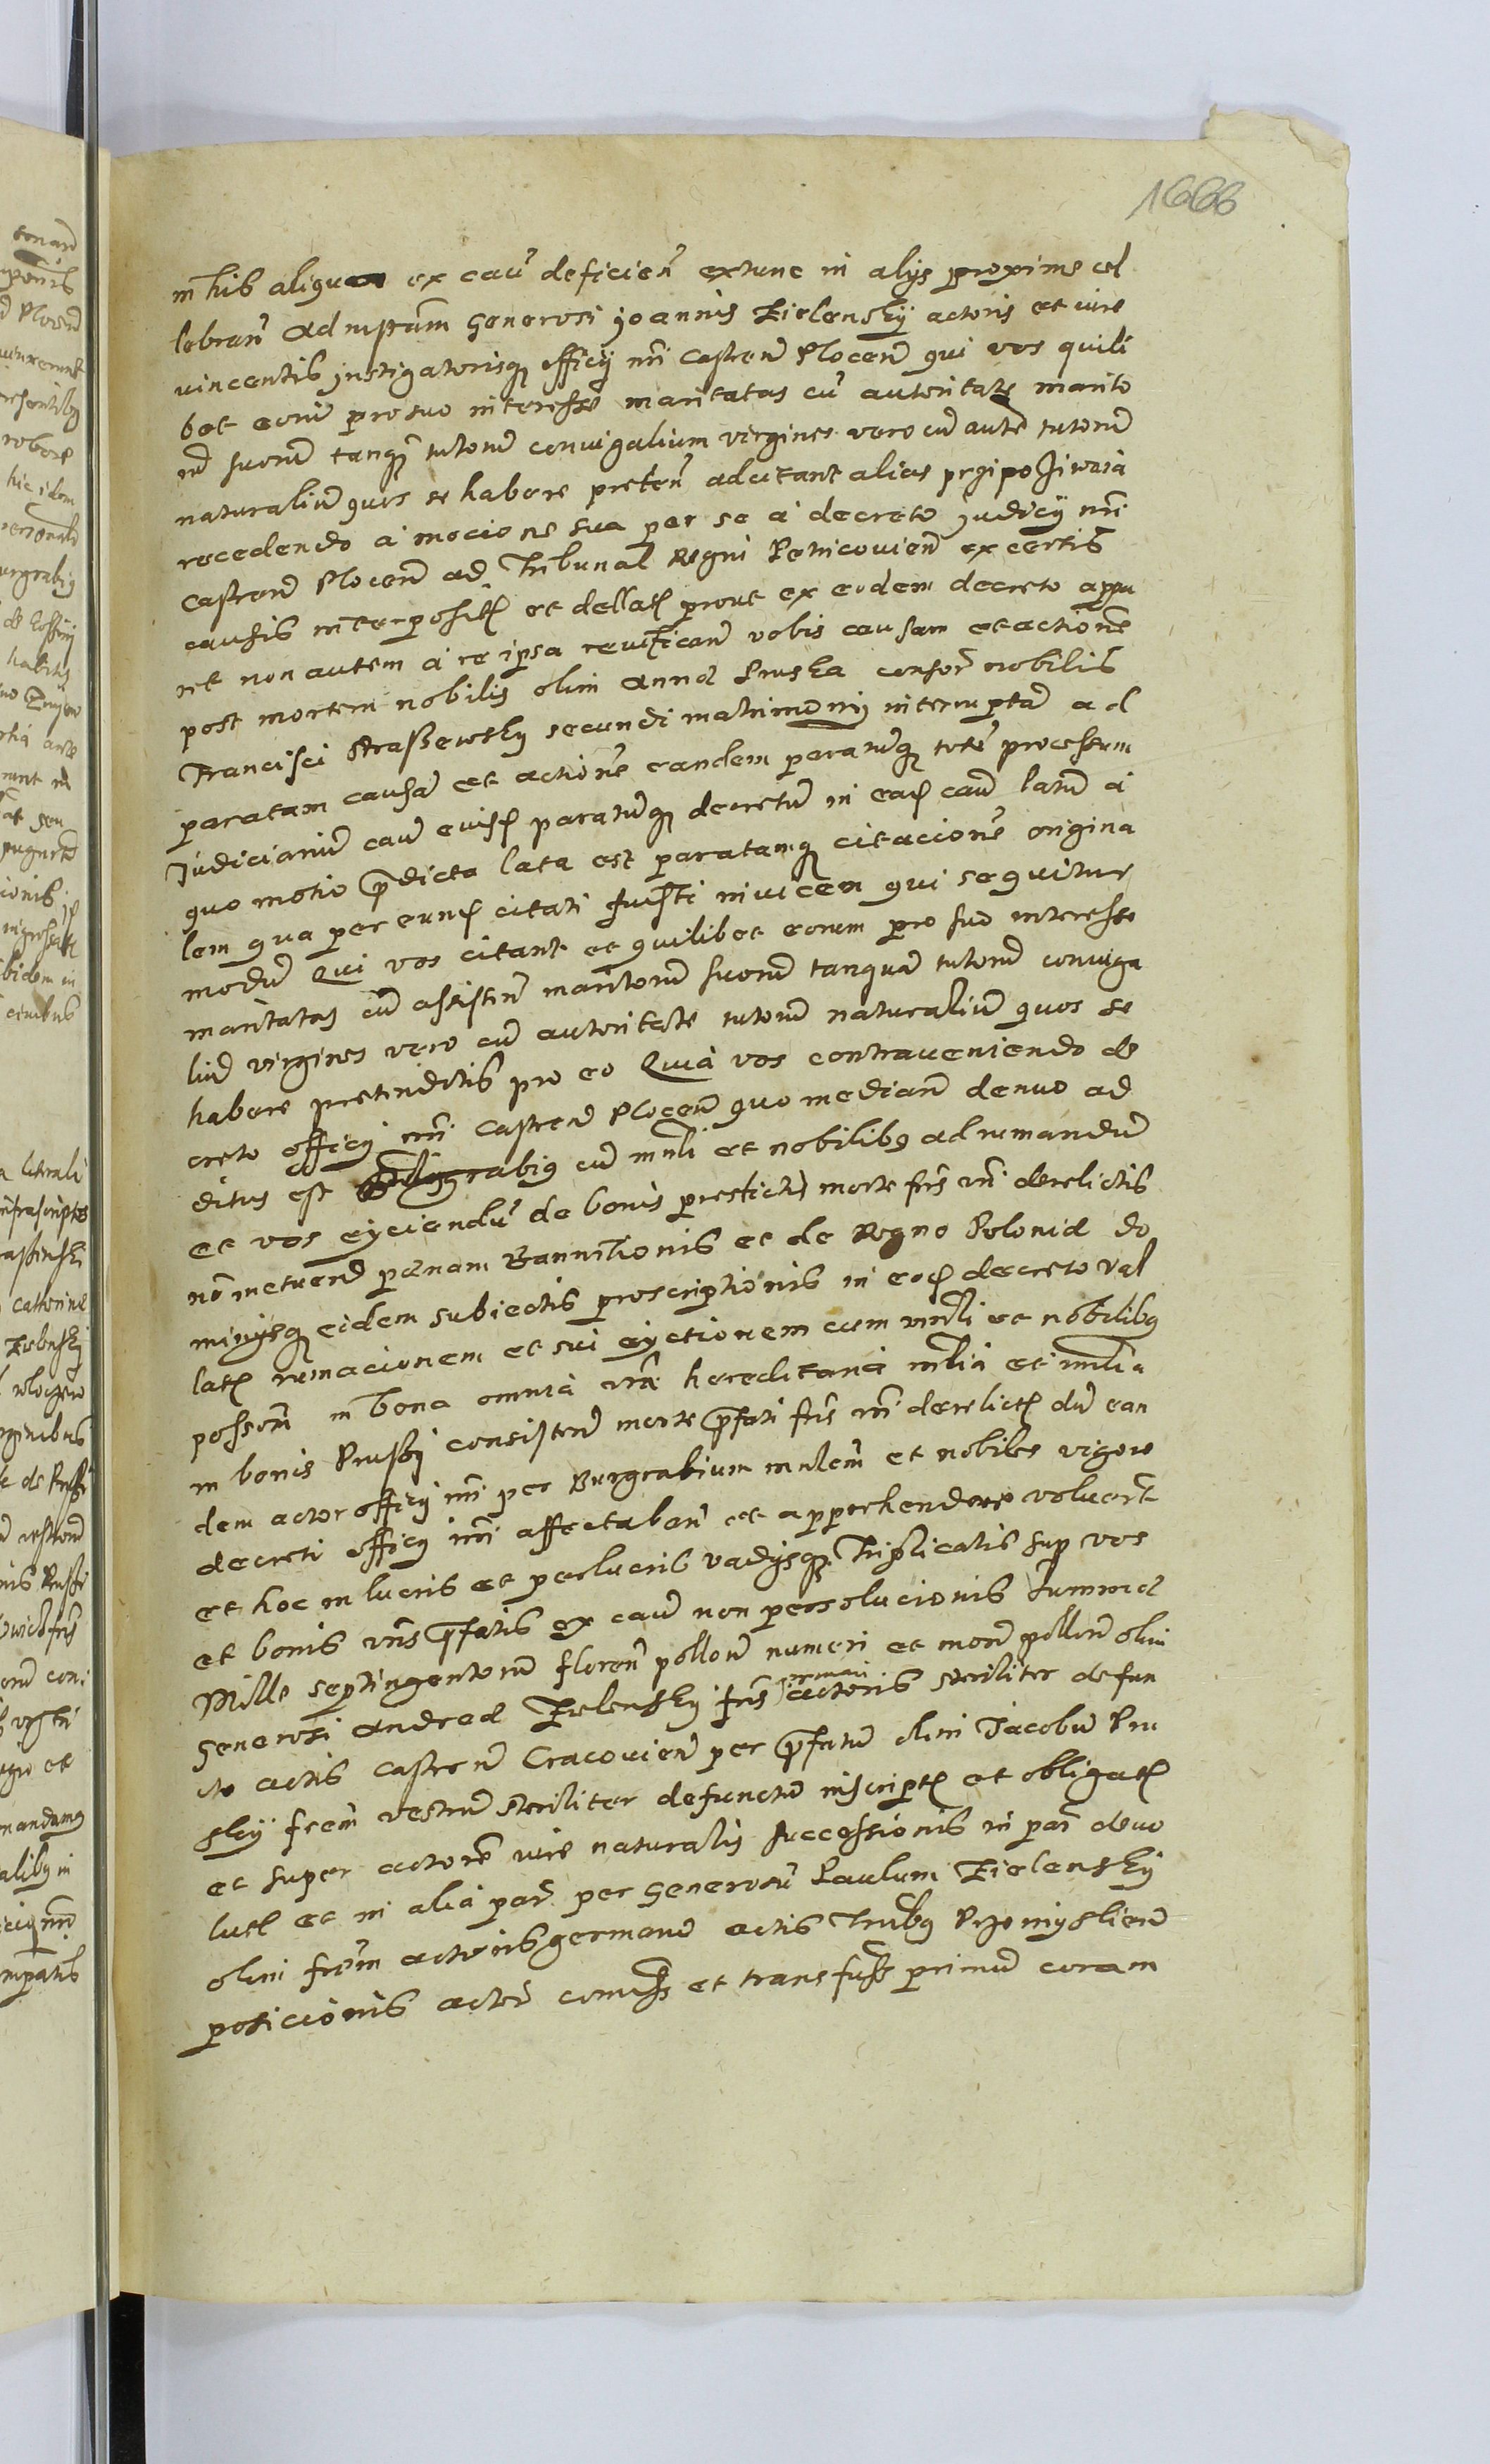 1666
in his aliqua ex cau deficien extunc in alijs proxime cel
lebran ad inpstam Generosi Joannis Zielensky actoris et iure
vincentis jnstigatorisq officij nri Castren Plocen qui vos quili
bet eoru pro suo interesse maritatas cu autoritate marito
ru suoru tanq tutoru coniugalium virgines vero cu aute tutoru
naturaliu quos se habere preten adcitant alias przipo
recedendo a mocione sua per se a decreto judicij nri
Castren Plocen ad Tribunal Regni Petricouien ex certis
causis interposit et dellat prout ex eodem decreto appa
ret non autem a re ipsa reuificant vobis causam et actione
post mortem nobilis olim Anna Pruska consor nobilis
Francisci Straszewsky secundi matrimonij interrupta ad
paratam causa et actione eandem paratuq totu processum
Judiciariu cau euisd paratuq decretu in ead cau latu a
quo motio pdicta lata est paratamq citacione origina
lem qua per eund citati fuisti inuicem qui sequitur
modu Qui vos citant et quilibet eorum pro suo interesse
maritatas cu assisten maritoru suoru tanqua tutoru coniuga
liu virgines vero cu autoritate tutoru naturaliu quos se
habere pretenditis pro eo Quia vos contraueniendo de
creto officij nri Castren Plocen quo median denuo ad
ditus est grabiq cu mnli et nobilibq ad rumandu
et vos eyciendu de bonis morte fris vri derelictis
no metuend poenam Bannitionis et de Regno Polonia do
minijsq eidem subiectis proscriptionis in eod decreto val
lat rumacionem et sui eyctionem cum mnli et nobilibq
posson in bona omnia vra hereditaria mlia et imlia
in bonis Prussy consisten morte pfati fris vri derelict du ean
dem actor officij nri per Burgrabium mnlem et nobiles vigore
decreti officij nri affectaban et apprehendere voluert
et hoc in lucris et perlucris vadijsq Triplicatis sup vos
et bonis vris pfatis ex cau non persolucionis summa
Mille septingentoru floren pollon numeri et mon pollon olim
Generosi Andrea Zielensky fris germani actoris steriliter defun
cto actis Castren Cracouien per pfatu olim Jacobu Pru
sky frem vestru steriliter defunctu inscript et obligat
et super actore iure naturalis successionis in par deuo
lut et in alia par per Generosu Paulum Zielensky
olim frem actoris germanu actis Trubq Przemysliens
posicionis actori comiss et transfuss primu coram